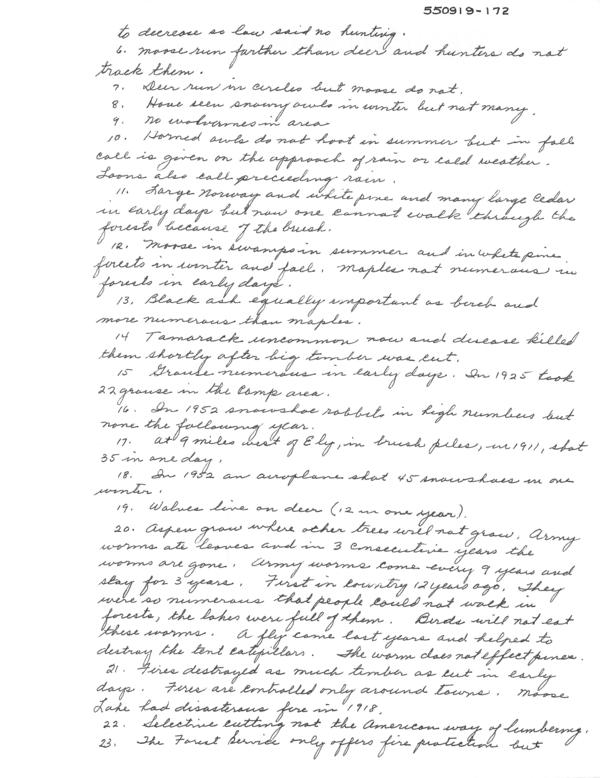 550919-172
to decrease so law said no hunting.
6. Moose run farther than deer and hunters do not
track them.
7. Deer run in circles but moose do not.
8. Have seen snowy owls in winter but not many.
9. No wolverines in area
10. Horned owls do not hoot in summer but in fall
call is given on the approach of rain or cold weather.
Loons also call preceeding rain.
11. Large Norway and white pine and many large cedar
in early days but now one cannot walk through the
forests because of the brush.
12. Moose in swamps in summer and in white pine
forests in winter and fall. Maples not numerous in
forests in early days.
13. Black ash equally important as birch and
more numerous than maples.
14 Tamarack uncommon now and disease killed
them shortly after big timber was cut.
15 Grouse numerous in early days. In 1925 took
22 grouse in the camp area.
16. In 1952 snowshoe rabbits in high numbers but
none the following year.
17. At 9 miles west of Ely, in brush piles, in 1911, shot
35 in one day.
18. In 1952 an aeroplane shot 45 snowshoes in one
winter.
19. Wolves live on deer (12 in one year).
20. Aspen grow where other trees will not grow. Army
worms ate leaves and in 3 consecutive years the
worms are gone. Army worms come every 9 years and
stay for 3 years. First in country 12 years ago. They
were so numerous that people could not walk in
forests, the lakes were full of them. Birds will not eat
these worms. A fly came last years and helped to
destroy the tent catepillars. The worm does not effect pines.
21. Fires destroyed as much timber as cut in early
days. Fires are controlled only around towns. Moose
Lake had disasterous fire in 1918.
22. Selective cutting not the American way of lumbering.
23. The Forest Service only offers fire protection but